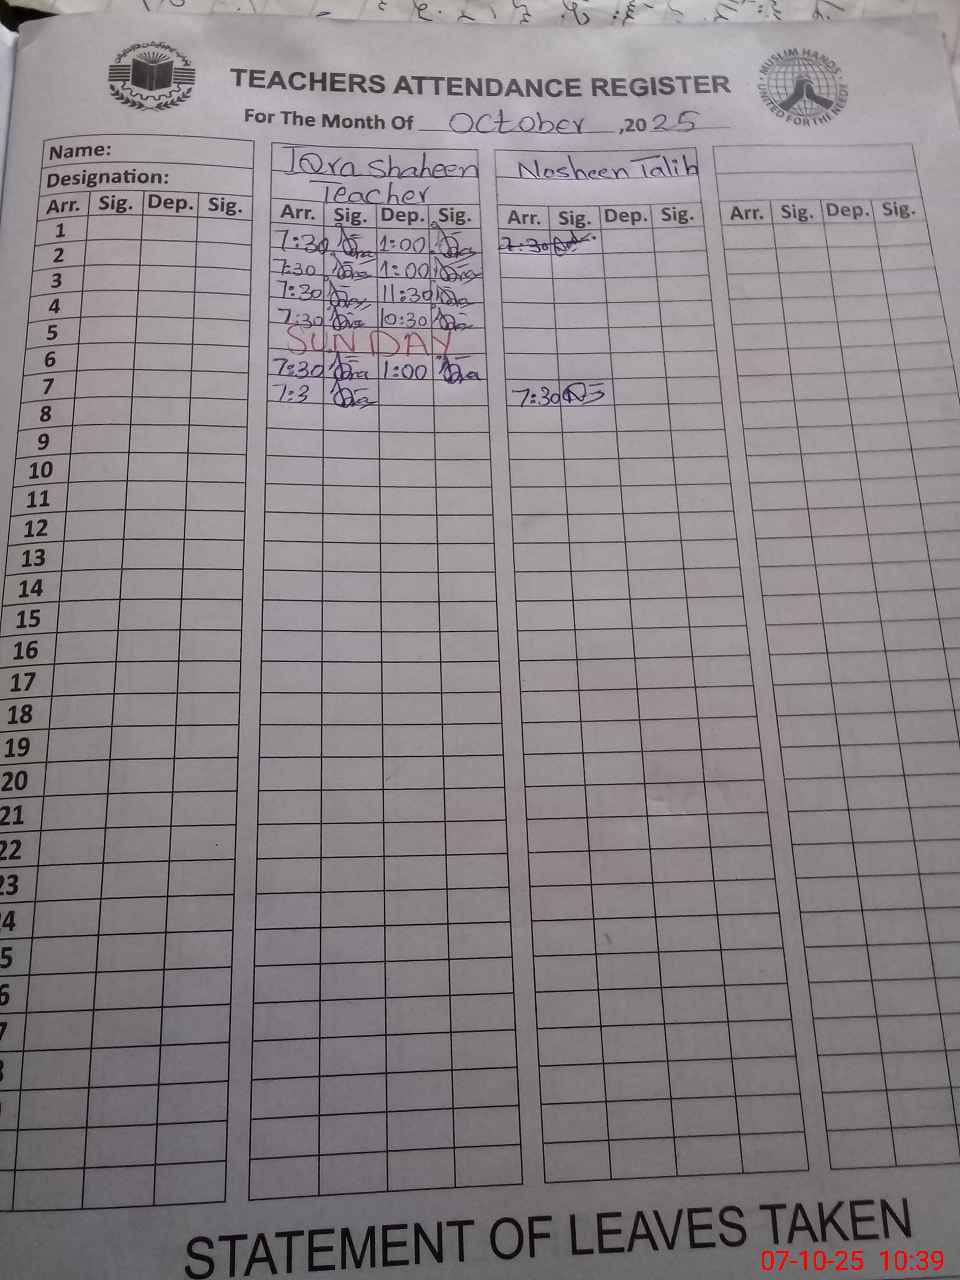 TEACHERS ATTENDANCE REGISTER
MUSLIM HANDS
UNITED FOR THE NEEDY
For The Month Of October ,20 25
Name: Iqra Shaheen Nosheen Talib
Designation: Teacher
Arr. Sig. Dep. Sig. Arr. Sig. Dep. Sig. Arr. Sig. Dep. Sig. Arr. Sig. Dep. Sig.
1 7:30 1:00 7:30
2 7:30 1:00
3 7:30 11:30
4 7:30 10:30
5 SUNDAY
6 7:30 1:00
7 7:3 7:30
8
9
10
11
12
13
14
15
16
17
18
19
20
21
22
23
4
5
6
7
STATEMENT OF LEAVES TAKEN
07-10-25 10:39